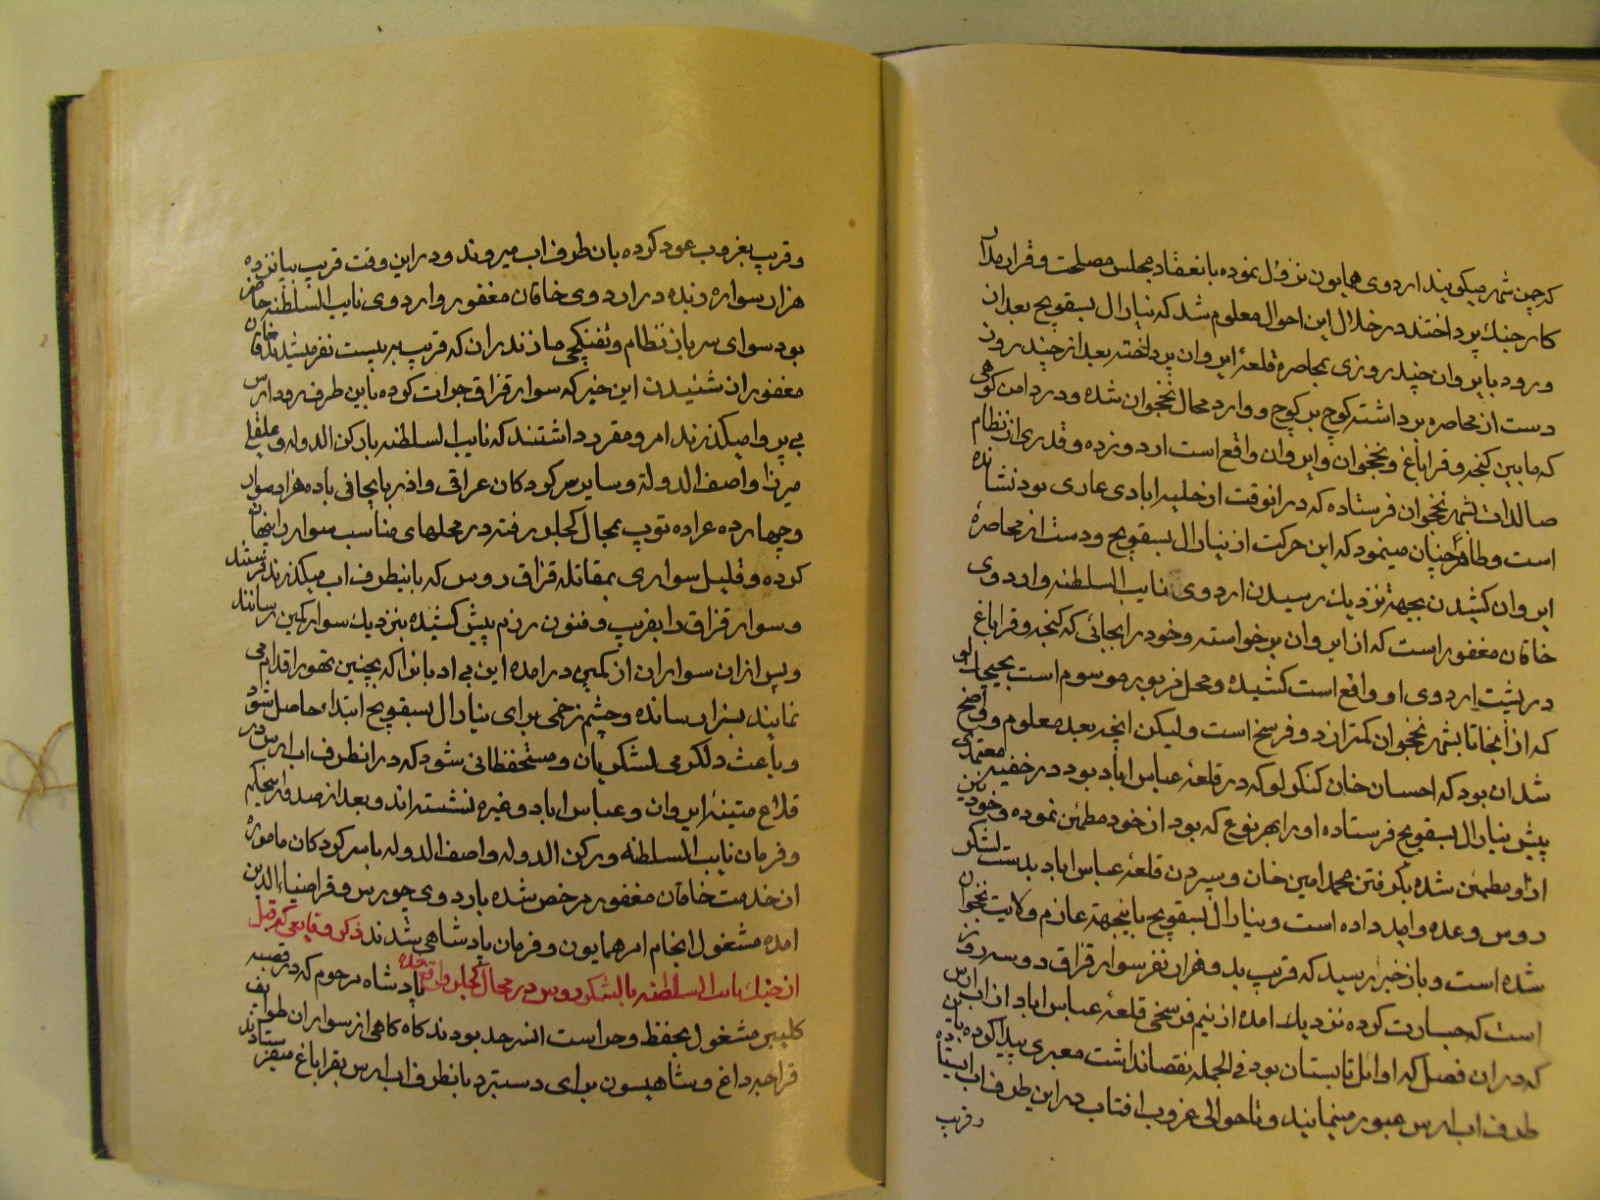 که چمن شهر میکویند اردوی همایون نزول نموده بانعقاد مجلس مصلحت و قرار مدار
کار جنك پرداختند در خلال این احوال معلوم شد که ینارال بسقویچ بعد از
ورود بایروان چند روزی بمحاصره قلعهٔ ایروان پرداخته بعد از چند روز
دست از محاصره برداشته کوچ بر کوچ و وارد محال نخجوان شده و در دامن کوهی
که مابین کنجه و قراباغ و نخجوان و ایروان واقع است اردو زده و قدری از نظام
صالدات بشهر نخجوان فرستاده که در انوقت از حلیه ابادی عاری بود نشانده
است و ظاهرً چنان مینمود که این حرکت از ینارال بسقویچ و دست از محاصرهٔ
ایروان کشیدن بجهة نزدیك رسیدن اردوی نایب السلطنه و اردوی
خاقان مغفور است که از ایروان برخواسته و خود را بجائی که کنجه و قراباغ
در پشت اردوی او واقع است کشیده و محل مزبور موسوم است
که از آنجا تا بشهر نخجوان کمتر از دو فرسخ است و لیکن انچه بعد معلوم و واضح
شد ان بود که احسان خان کنکرلو که در قلعهٔ عباس اباد بود در خفیه معتمدی
پیش ینارال بسقویچ فرستاده او را بهر نوع که بود از خود مطمئن نموده و خود نیز
از او مطمئن شده بکرفتن محمد امین خان و سپردن قلعهٔ عباس اباد بدست لشکر
روس وعده و امید داده است و ینارال بسقویچ باینجهة عازم ولایت نخجوان
شده است و باز خبر رسید که قریب بدو هزار نفر سوار قزاق دو سه روز
است که جسارت کرده نزدیك امده از نیم فرسخی قلعهٔ عباس اباد از اب ارس
که در ان فصل که اوائل تابستان بود فی الجمله نقصانداشت معبری پیدا کرده باین
طرف اب ارس عبور مینمایند و تا حوالی غروب افتاب در این طرف اب ایستاده
و قریب
و قریب بغروب عود کرده بان طرف اب میروند و در این وقت قریب بپانزده
هزار سواره زبده در اردوی خاقان مغفور و اردوی نایب السلطنه حاضر
بود سوای سرباز نظام و تفنکچی مازندران که قریب به بیست نفر میشدند خاقان
مغفور از شنیدن این خبر که سوار قزاق جرات کرده باین طرف رود ارس
بی پروا میکذرند امر و مقرر داشتند که نایب السلطنه با رکن الدوله و علینقی
میرزا و اصف الدولة و سایر سرکردکان عراقی و اذربایجانی با ده هزار سوار
و چهارده عراده توپ بمحال کجلو رفته در محلهای مناسب سوار را پنهان
کرده و قلیل سواری بمقاتله قزاق روس که باینطرف اب میکذرند فرستند
و سوار قزاق را بفریب و فنون رزم پیش کشیده بنزدیك سوار کمین رسانند
و پس از ان سواران از کمین در امده این بی ادبانرا که بچنین تهور اقدام می
نمایند بسزا رسانده و چشم زخمی برای ینارال بسقویچ ابتداء حاصل شود
و باعث دلکرمی لشکریان و مستحفظانی شود که در انطرف اب ارس در
قلاع متینهٔ ایروان و عباس اباد و غیره نشسته اند و بعد از صدور این حکم
و فرمان نایب السلطنه و رکن الدوله و اصف الدوله با سرکردکان ماموره
از خدمت خاقان مغفور مرخص شده باردوی چورس و قراضیاءالدین
امده مشغول انجام امر همایون و فرمان پادشاهی شدند ذکر وقایعی که قبل
از جنك نایب السلطنه با لشکر روس در محال کجلو واقع شده پادشاه مرحوم که در قصبه
کلیبر مشغول بحفظ و حراست انسرحد بودند کاه کاهی از سواران طوایف
قراجه داغ و شاهیسون برای دستبرد بانطرف اب ارس بقراباغ میفرستادند